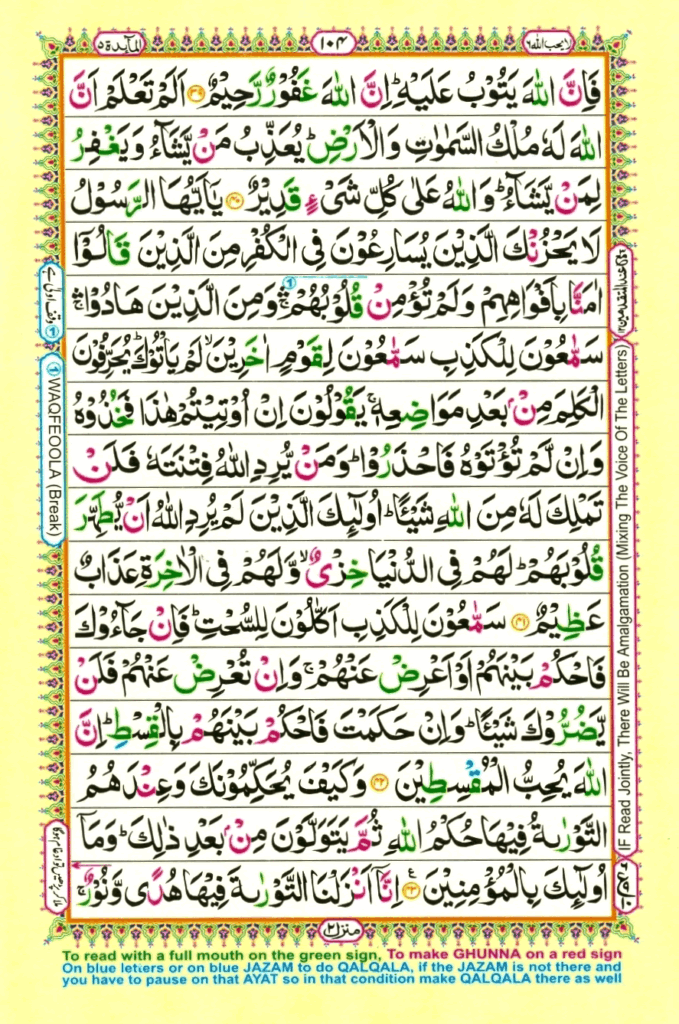 لا يحب الله ٦
١٠٤
المآىدة ٥
فَاِنَّ اللّٰهَ يَتُوْبُ عَلَيْهِ ؕ اِنَّ اللّٰهَ غَفُوْرٌ رَّحِيْمٌ ﴿۳۹﴾ اَلَمْ تَعْلَمْ اَنَّ
اللّٰهَ لَهٗ مُلْكُ السَّمٰوٰتِ وَالْاَرْضِ ؕ يُعَذِّبُ مَنْ يَّشَآءُ وَيَغْفِرُ
لِمَنْ يَّشَآءُ ؕ وَاللّٰهُ عَلٰى كُلِّ شَىْءٍ قَدِيْرٌ ﴿۴۰﴾ يٰۤاَيُّهَا الرَّسُوْلُ
لَا يَحْزُنْكَ الَّذِيْنَ يُسَارِعُوْنَ فِى الْكُفْرِ مِنَ الَّذِيْنَ قَالُوْۤا
اٰمَنَّا بِاَفْوَاهِهِمْ وَلَمْ تُؤْمِنْ قُلُوْبُهُمْ ۛۚ وَمِنَ الَّذِيْنَ هَادُوْا ۛۚ
سَمّٰعُوْنَ لِلْكَذِبِ سَمّٰعُوْنَ لِقَوْمٍ اٰخَرِيْنَ ۙ لَمْ يَاْتُوْكَ ؕ يُحَرِّفُوْنَ
الْكَلِمَ مِنْۢ بَعْدِ مَوَاضِعِهٖ ۚ يَقُوْلُوْنَ اِنْ اُوْتِيْتُمْ هٰذَا فَخُذُوْهُ
وَاِنْ لَّمْ تُؤْتَوْهُ فَاحْذَرُوْا ؕ وَمَنْ يُّرِدِ اللّٰهُ فِتْنَتَهٗ فَلَنْ
تَمْلِكَ لَهٗ مِنَ اللّٰهِ شَيْـًٔا ؕ اُولٰٓئِكَ الَّذِيْنَ لَمْ يُرِدِ اللّٰهُ اَنْ يُّطَهِّرَ
قُلُوْبَهُمْ ؕ لَهُمْ فِى الدُّنْيَا خِزْىٌ ۙ وَّلَهُمْ فِى الْاٰخِرَةِ عَذَابٌ
عَظِيْمٌ ﴿۴۱﴾ سَمّٰعُوْنَ لِلْكَذِبِ اَكّٰلُوْنَ لِلسُّحْتِ ؕ فَاِنْ جَآءُوْكَ
فَاحْكُمْ بَيْنَهُمْ اَوْ اَعْرِضْ عَنْهُمْ ۚ وَاِنْ تُعْرِضْ عَنْهُمْ فَلَنْ
يَّضُرُّوْكَ شَيْـًٔا ؕ وَاِنْ حَكَمْتَ فَاحْكُمْ بَيْنَهُمْ بِالْقِسْطِ ؕ اِنَّ
اللّٰهَ يُحِبُّ الْمُقْسِطِيْنَ ﴿۴۲﴾ وَكَيْفَ يُحَكِّمُوْنَكَ وَعِنْدَهُمُ
التَّوْرٰىةُ فِيْهَا حُكْمُ اللّٰهِ ثُمَّ يَتَوَلَّوْنَ مِنْۢ بَعْدِ ذٰلِكَ ؕ وَمَاۤ
اُولٰٓئِكَ بِالْمُؤْمِنِيْنَ ﴿۴۳﴾ اِنَّاۤ اَنْزَلْنَا التَّوْرٰىةَ فِيْهَا هُدًى وَّنُوْرٌ ۚ
IF Read Jointly, There Will Be Amalgamation (Mixing The Voice Of The Letters)
① WAQFEOOLA (Break)
منزل ٢
To read with a full mouth on the green sign, To make GHUNNA on a red sign
On blue letters or on blue JAZAM to do QALQALA, if the JAZAM is not there and
you have to pause on that AYAT so in that condition make QALQALA there as well